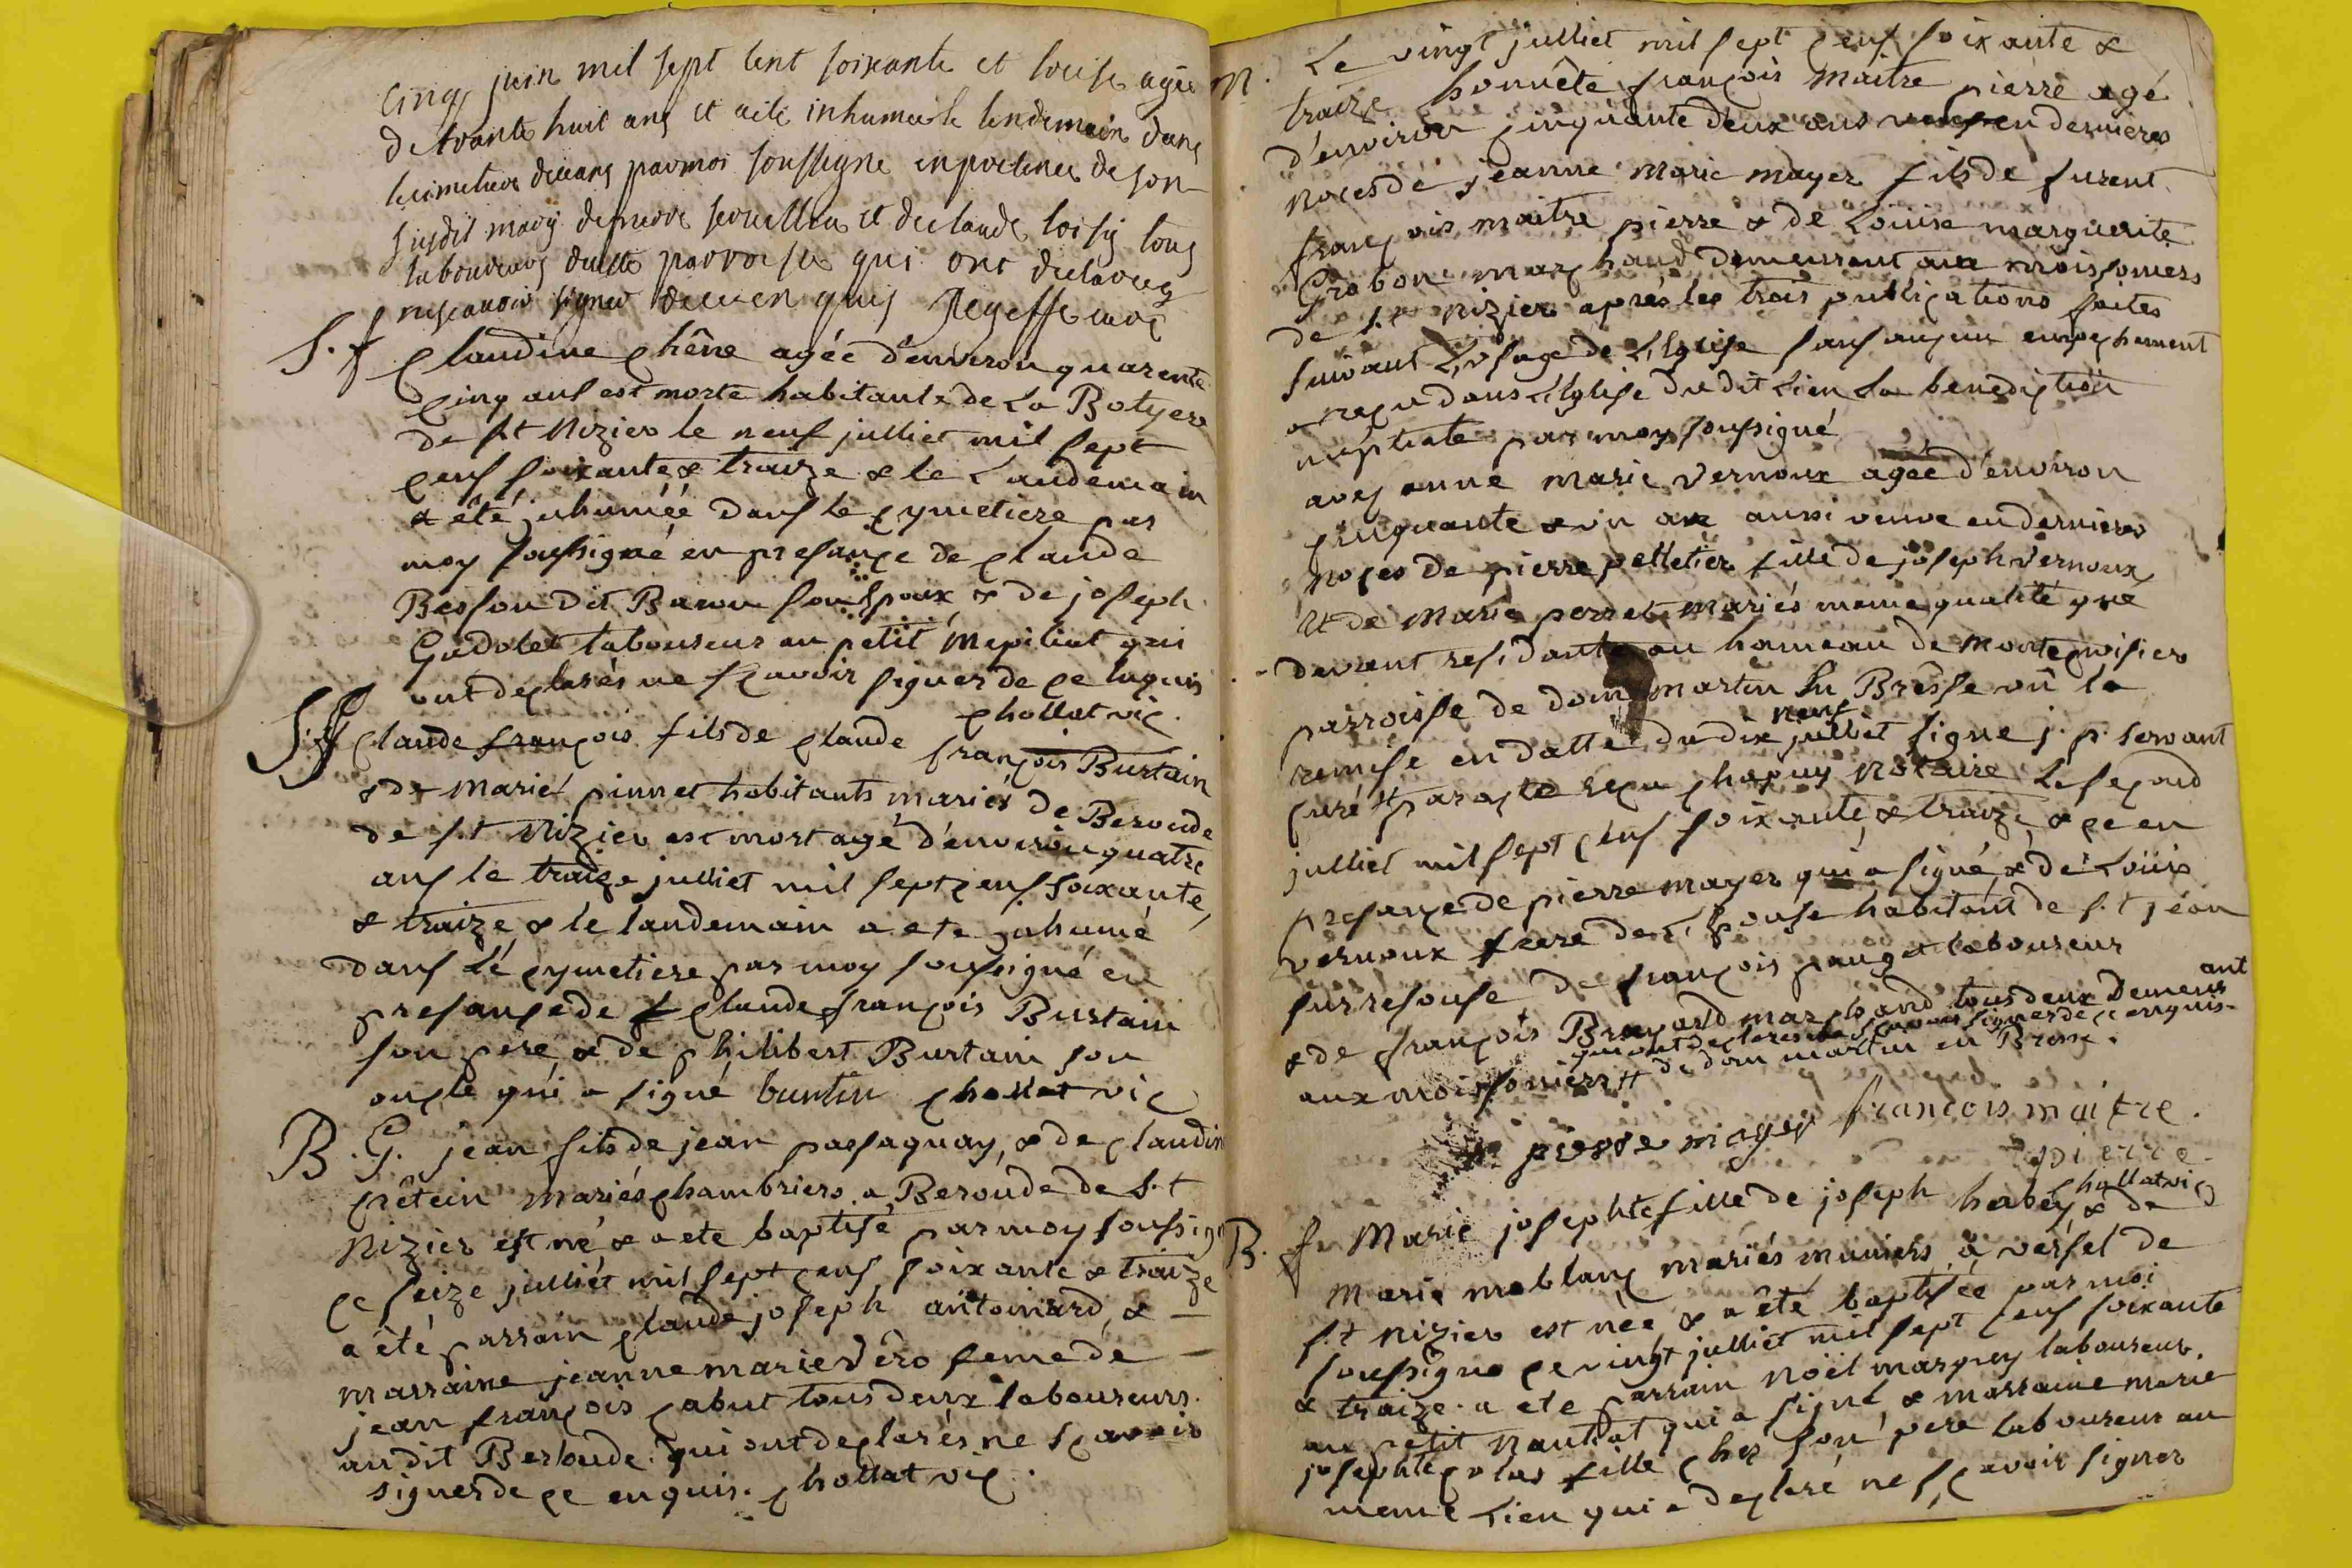 Cinq juin mil sept cent soixante et treise agée
de trante huit ans et aété inhumée le lendemain dans
le cimetiere deceans parmoi soussigne enpresence de son
susdit mary de pierre et de claude loisy tous
laboureurs dudit parroisse qui ont declarés
ne scavoir signer de ce enquis
S. f claudine chêne agée d'environ quarente
cinq ans est morte habitante de La Botyere
de st Nizier le neuf julliet mil sept
cens soixante & traize & le Landemain
a été juhumée dans le cymetiere par
moy soussigné en presance de claude
Besson dit Baron son Epoux & de joseph
Gadolet laboureur au petit Mepiliat qui
ont declarés ne scavoir signer de ce enquis
chollat vic.
S. G claude françois fils de claude françois Burtain
& de Marie pinnet habitants mariés de Beroude
de s.t Nizier est mort agé d'environ quatre
ans le traize julliet mil sept cens soixante,
& traize & le landemain a ete juhumé
dans le cymetiere par moy soussigné en
presance de claude françois Burtain
son pere & de philibert Burtain son
oncle qui a signé burtin chollat vic
B. G. jean fils de jean passaquay, & de claudin
prêtein mariés chambriers a Beroude de S.t
Nizier est né & a ete baptisé par moy soussign
ce seize julliet mil sept cens soixante & traize
a été parrain claude joseph antoinard, &
marraine jeanne marie Véro feme de
jean françois cabut tous deux laboureurs.
audit Beroude qui ont declarés ne scavoir
signer de ce enquis. chollat vic.
M. Le vingt julliet mil sept cens soixante &
traize honnête françois maitre pierre agé
d'environ cinquante deux ans veuf en dernieres
noces de jeanne marie mayer fils de furent
françois maitre pierre & de Louise marguerite
Grabon marchand demeurant aux moissonniers
de s.t Nizier aprés les trois publications faites
suivant L'usage de L'Eglise sans aucun empechement
a reçu dans L'Eglise du dit Lieu La benediction
nuptiale par moy soussigné
avec anne marie vernoux agée d'environ
cinquante & un an aussi veuve en dernieres
noces de pierre pelletier fille de joseph vernoux
et de Marie perret mariés meme qualité que
devant residante au hameau de Montecroisier
parroisse de dom martin En Bresse où la
remise en datte du dix neuf julliet signé j. p. servant
curé & par acte reçu chapuy Notaire Le second
julliet mil sept cens soixante & traize, & ce en
presance de pierre mayer qui a signé, & de Louis
vernoux frere de L'Epouse habitant de s.t jean
sur resouse de françois pauget laboureur
& de françois Bressand marchand tous deux Demeurant
aux moissonniers # de dom martin en Bresse.
qui ont declarés ne scavoir signer de ce enquis
pierre mayer francois maitre
pierre
chollat vic
B. f Marie josephte fille de joseph habey & de
Marie mablanc mariés muniers, à versel de
s.t Nizier est née & a été baptisée par moi
soussigné ce vingt julliet mil sept cens soixante
& traize. a ete parrain Noël marguy laboureur.
au petit Nantiat qui a signé & marraine marie
josephte colas fille chez son pere laboureur au
meme Lieu qui a declaré ne scavoir signer